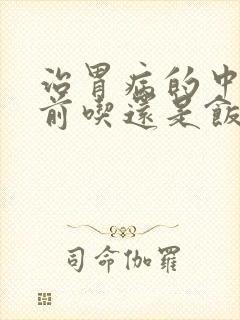 治胃病的中
前喫還是飯
司命伽羅